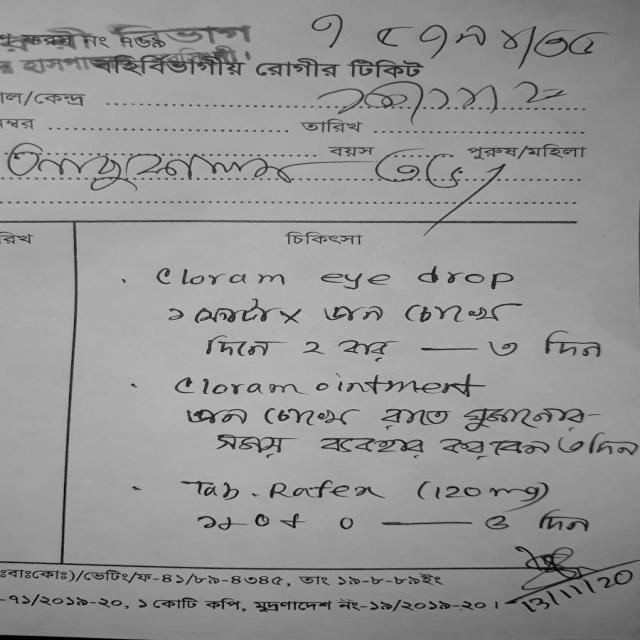 বিভাগ
বহির্বিভাগীয় রোগীর টিকিট
াল/কেন্দ্র
ম্বর তারিখ
বয়স ৩৫ পুরুষ/মহিলা
রিখ চিকিৎসা
Cloram eye drop
১ ফোটা x ডান চোখে
দিনে ২ বার — ৩ দিন
Cloram ointment
ডান চোখে রাতে ঘুমানোর
সময় ব্যবহার করবেন ৩ দিন
Tab. Rafex (120 mg)
১+০+০ — দিন
ঃবাঃকোঃ)/ভেটিং/ফ-৪১/৮৯-৪৩৪৫, তাং ১৯-৮-৮৯ইং
-৭১/২০১৯-২০, ১ কোটি কপি, মুদ্রণাদেশ নং-১৯/২০১৯-২০।
13/11/20